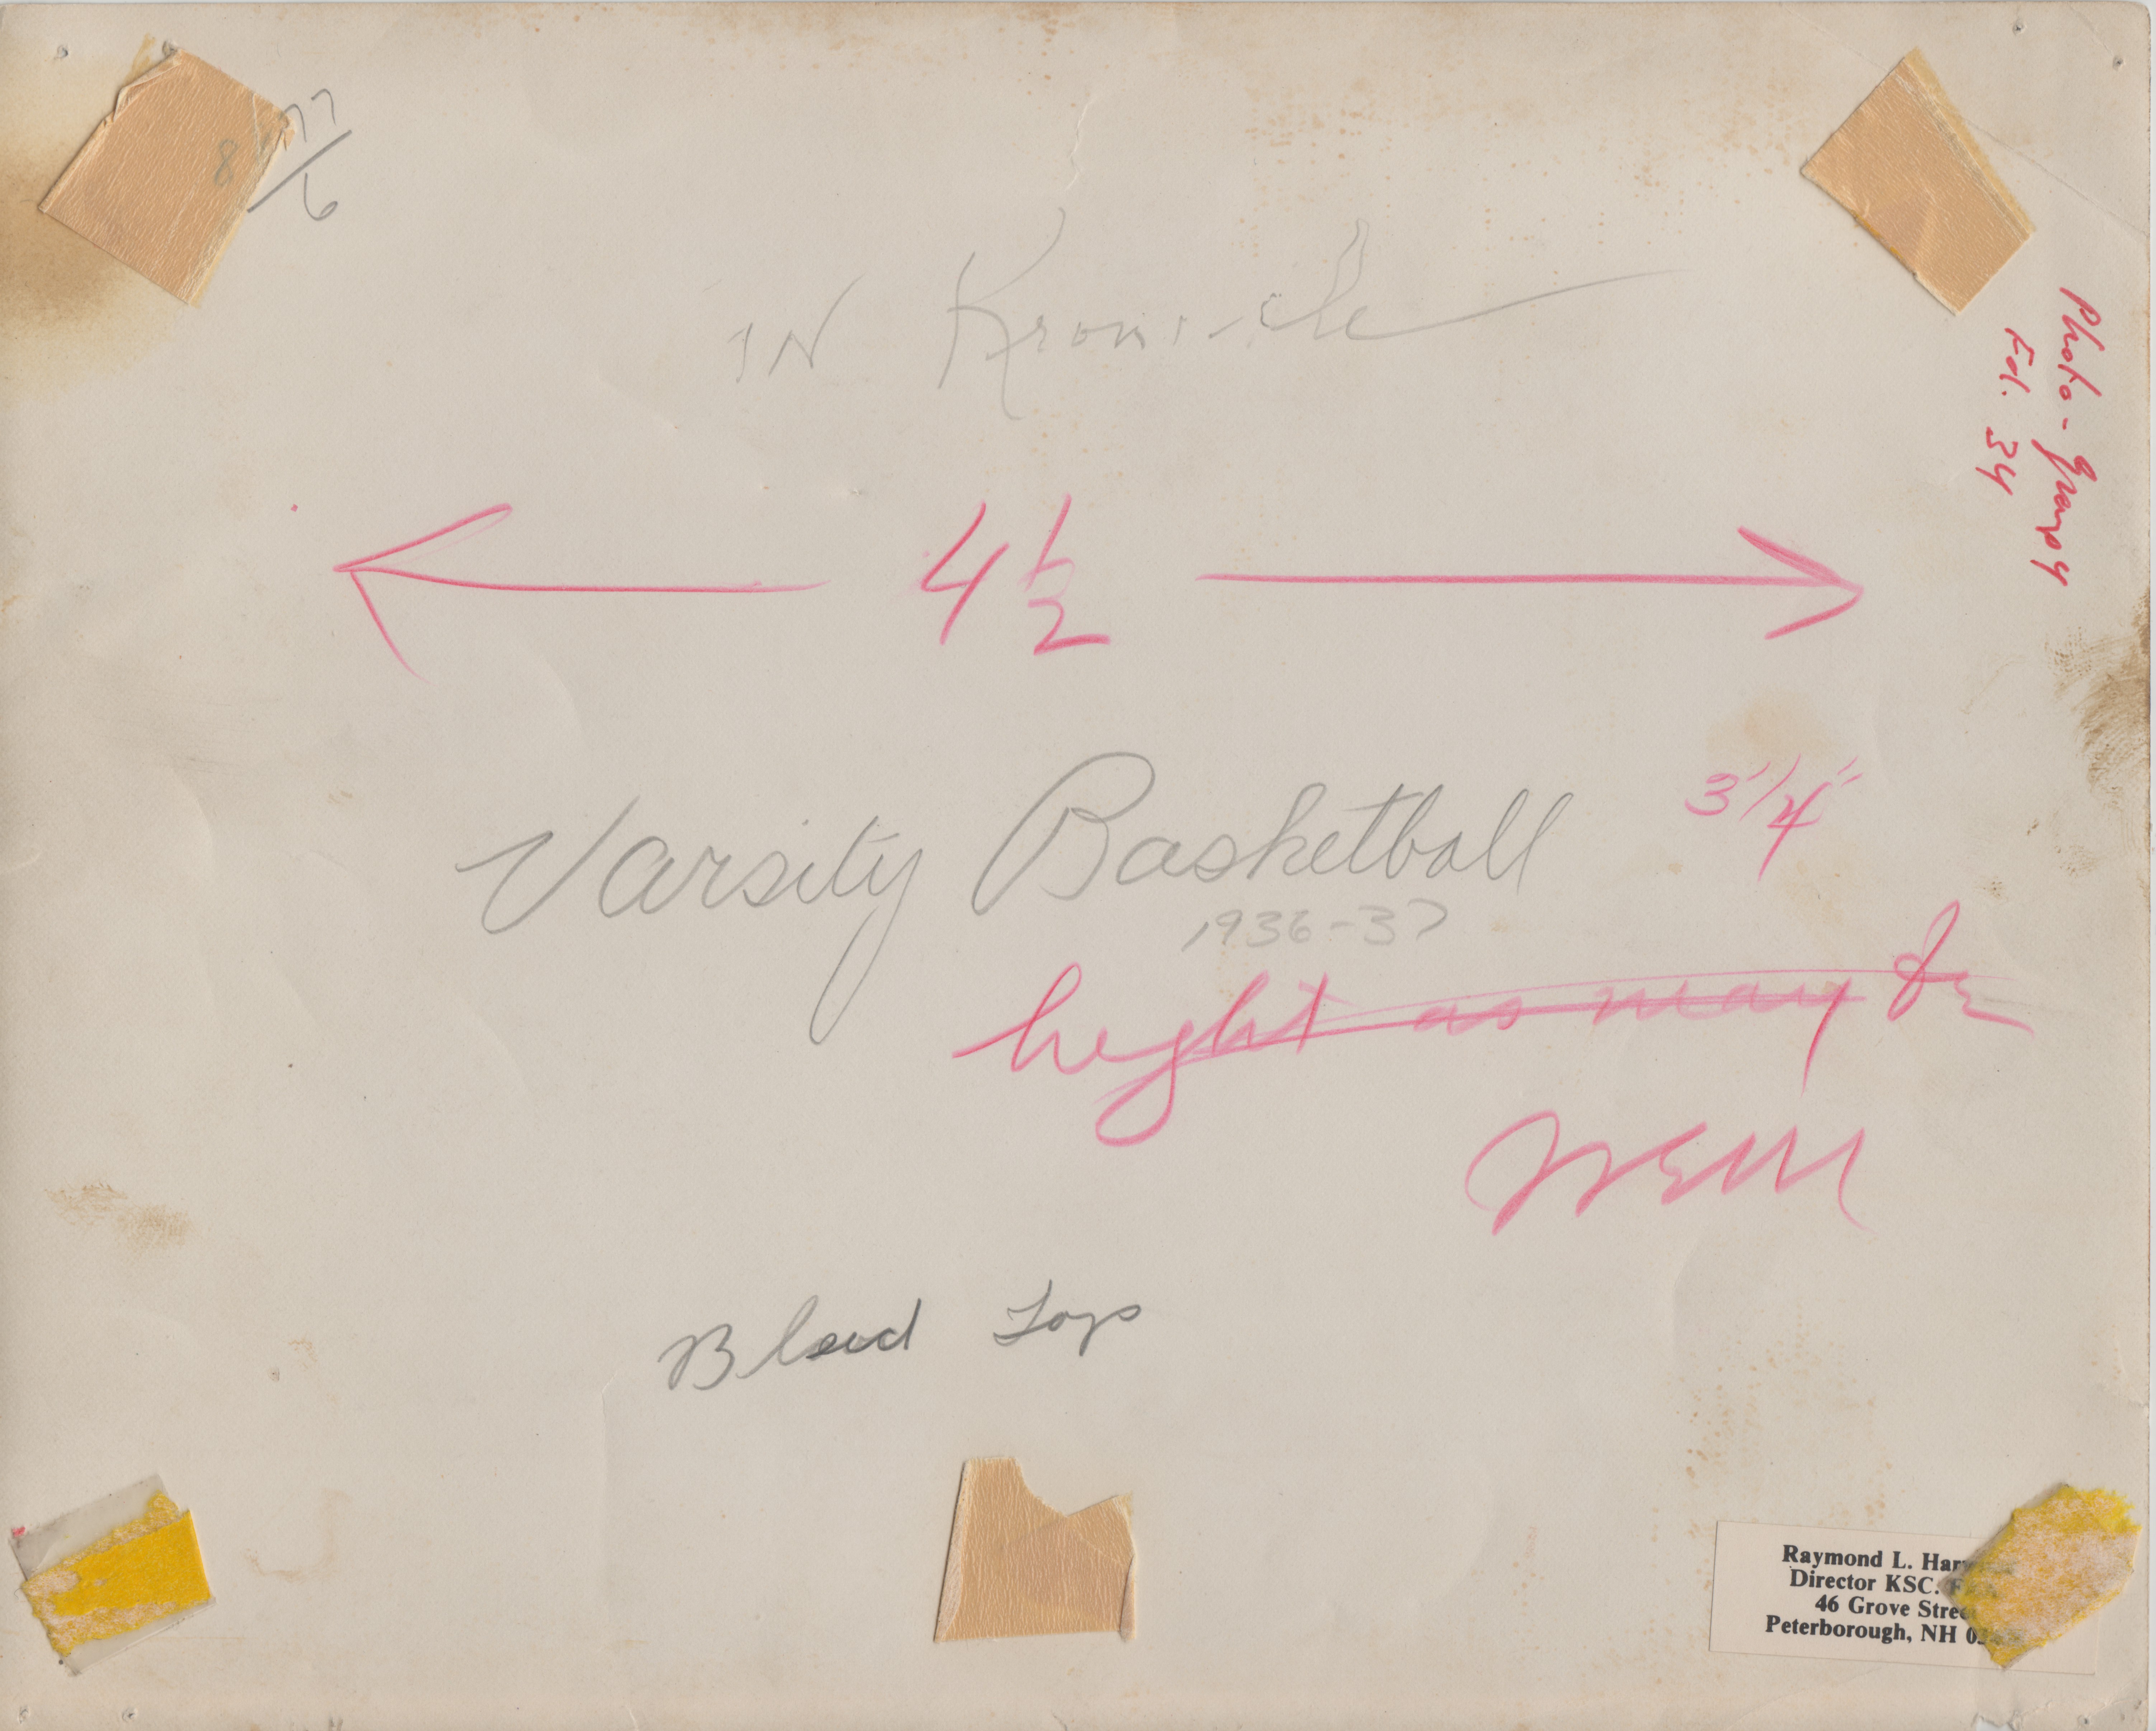 8 77/6
IN Kronicle
Photo-group 4
Fol. 34
4 1/2
Varsity Basketball
3 1/4"
1936-37
heght as may be
Bleed Top
Raymond L.
Director KSC.
46 Grove
Peterborough, NH